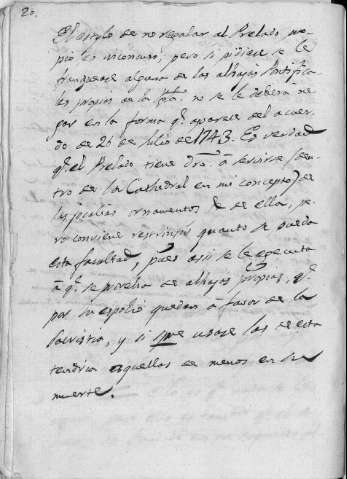 20.
El estilo de no regalar al Prelado pro-
pio es inconcuso; pero si pidiese se le
franquease alguna de las alhajas Pontifica-
les propias de la fra. no se le debera ne-
gar en la forma q. aparece del acuer-
do de 26 de Julio de 1743. Es verdad
q. el Prelado tiene dro. a servirse (den-
tro de la Cathedral en mi concepto) de
las jocalias ornamentos de ella, pe-
ro conviene restrinjir quanto se pueda
esta facultad, pues assi se le executa
a q. se provea de alhajas propias, q.
por su espolio quedan a favor de la
Sacristia, y si spre. usase las de esta
tendria aquellas de menos en su
muerte.